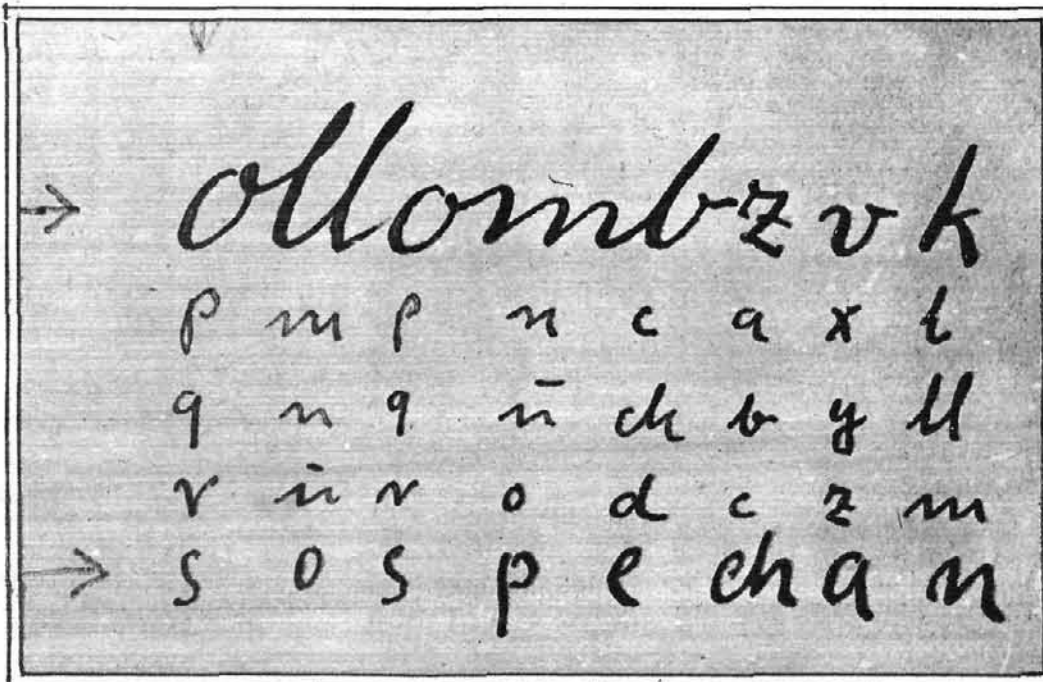 ollombz v k
p m p n c a x l
q n q ñ ch b y ll
r ñ r o d c z m
s o s p e ch a n